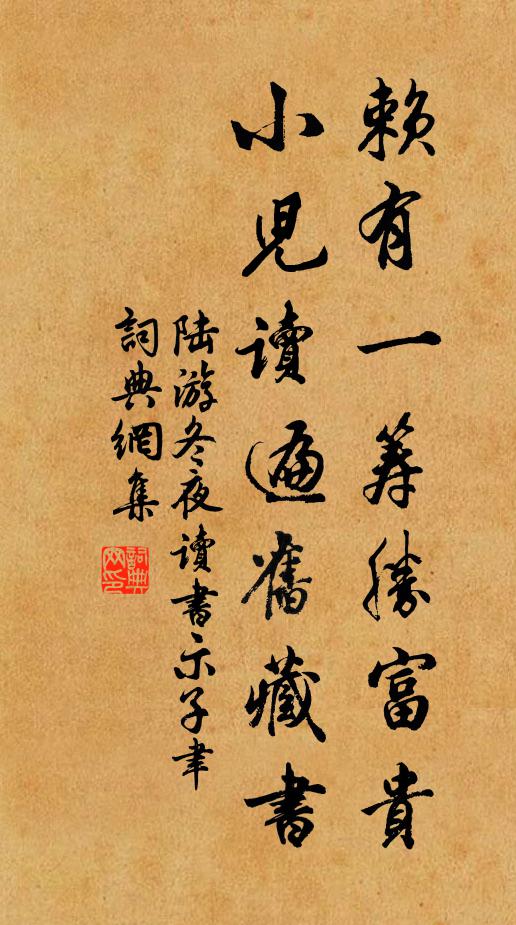 賴有一籌勝富貴
小兒讀遍舊藏書
陆游冬夜讀書示子聿
詞典網集
詞典網印